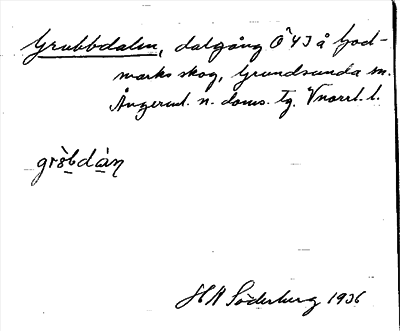 Grubbdalen, dalgång Ö 43 å God-
marks skog, Grundsunda sn.
Ångerml. n. doms. tg. Vnorrl. l.
gròbdàn
H A Söderberg 1936